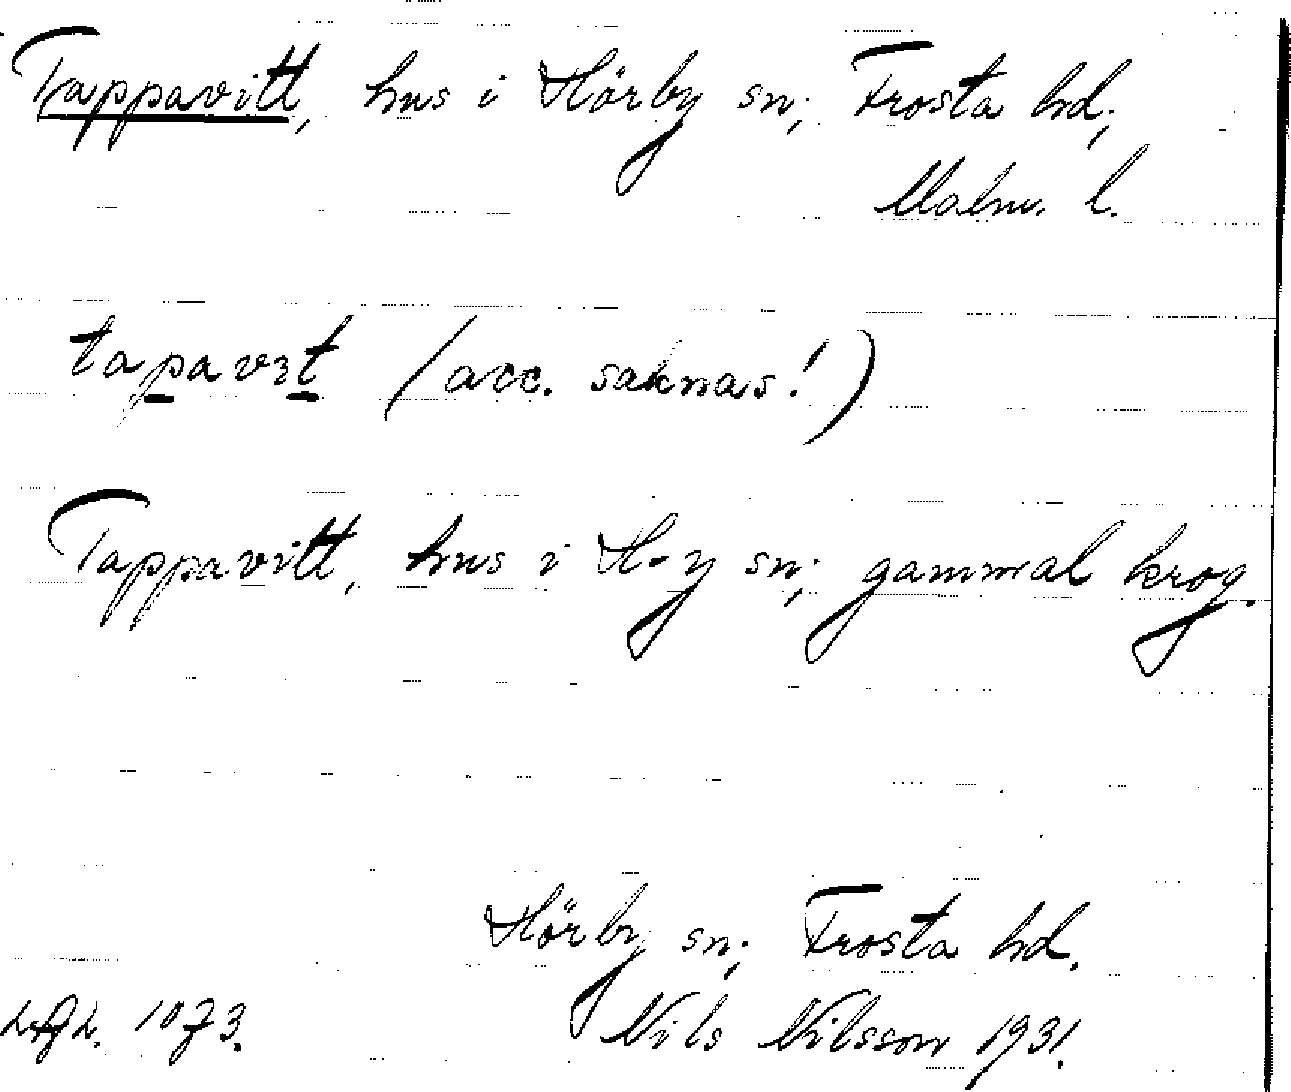 Tappavitt, hus i Hörby sn; Frosta hd;
Malm. l.
tapavɪt (acc. saknas!)
Tappavitt, hus i H-y sn; gammal krog.
Hörby sn; Frosta hd.
1073. Nils Nilsson 1931.